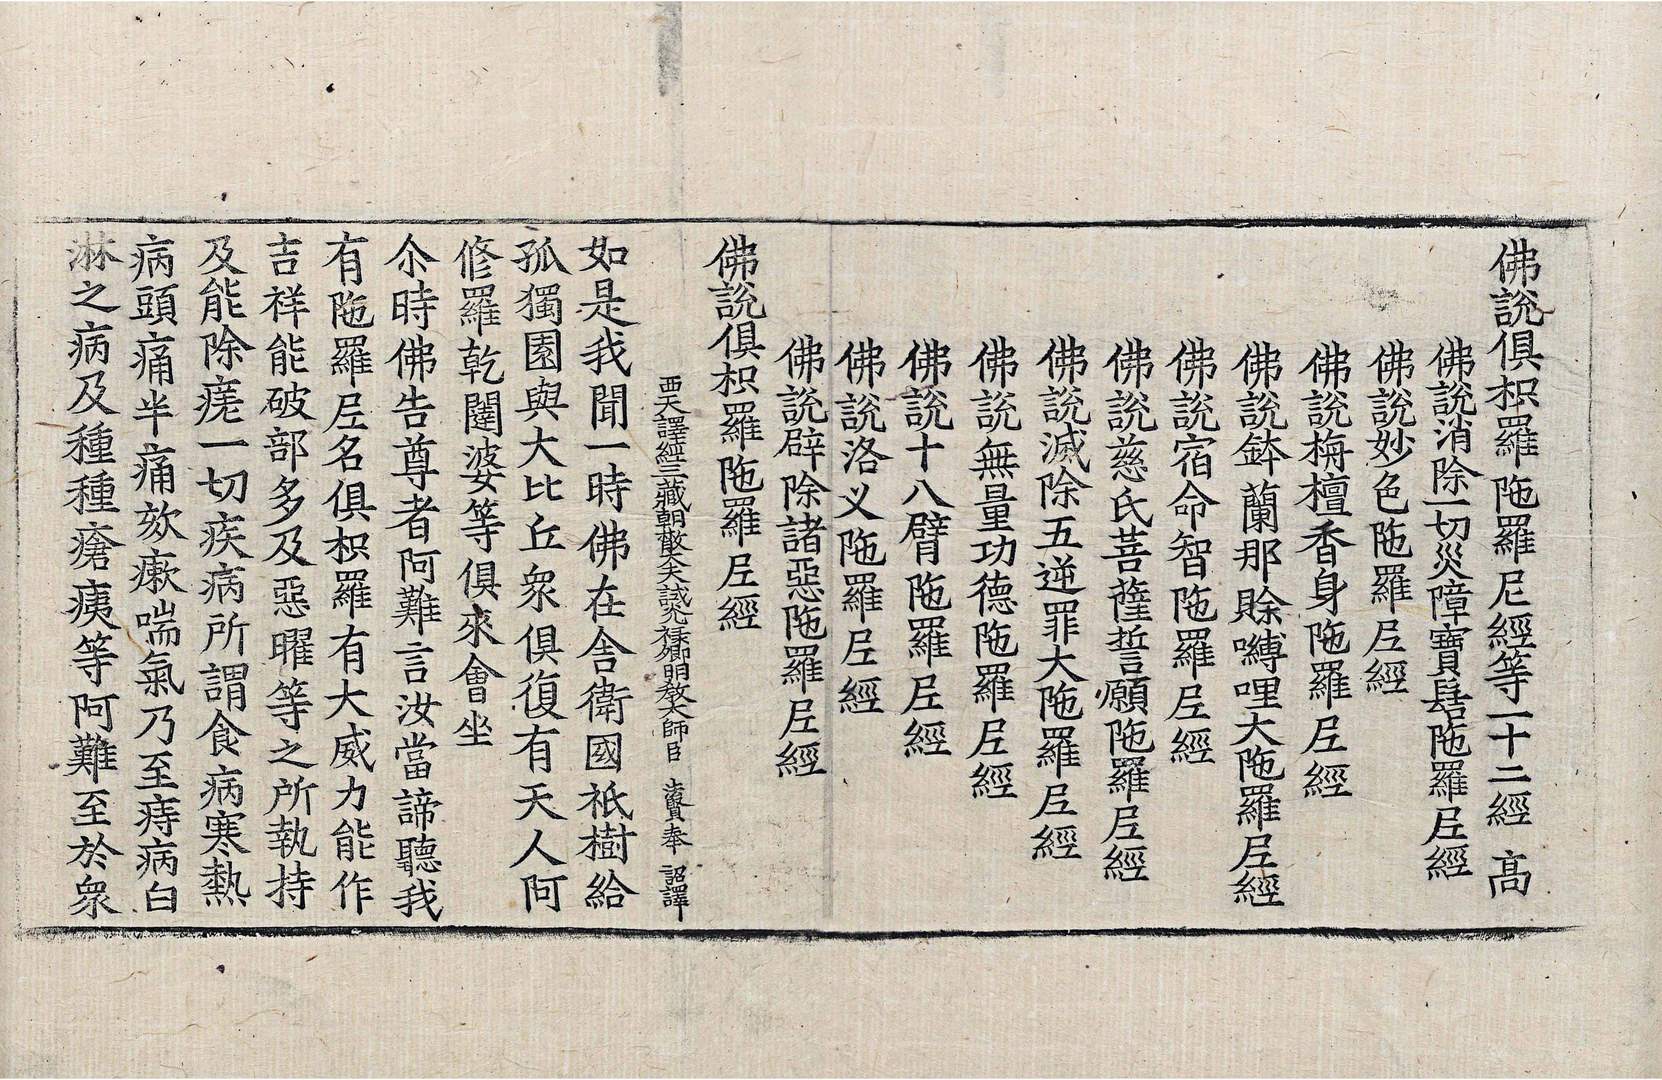 佛說俱枳羅陁羅尼經等一十二經 高
佛說消除一切災障寶髻陁羅𡰱經
佛說妙色陁羅𡰱經
佛說栴檀香身陁羅𡰱經
佛說鉢蘭那賒嚩哩大陁羅𡰱經
佛說宿命智陁羅𡰱經
佛說慈氏菩薩誓願陁羅𡰱經
佛說滅除五逆罪大陁羅𡰱經
佛說無量功德陁羅𡰱經
佛說十八臂陁羅𡰱經
佛說洛叉陁羅𡰱經
佛說辟除諸惡陁羅𡰱經
佛說俱枳羅陁羅𡰱經
西天譯經三藏朝散大夫試光祿卿明教大師臣 法賢奉 詔譯
如是我聞一時佛在舍衛國祇樹給
孤獨園與大比丘眾俱復有天人阿
修羅乾闥婆等俱來會坐
尒時佛告尊者阿難言汝當諦聽我
有陁羅𡰱名俱枳羅有大威力能作
吉祥能破部多及惡曜等之所執持
及能除㾗一切疾病所謂食病寒熱
病頭痛半痛欬嗽喘氣乃至痔病白
淋之病及種種瘡痍等阿難至於眾